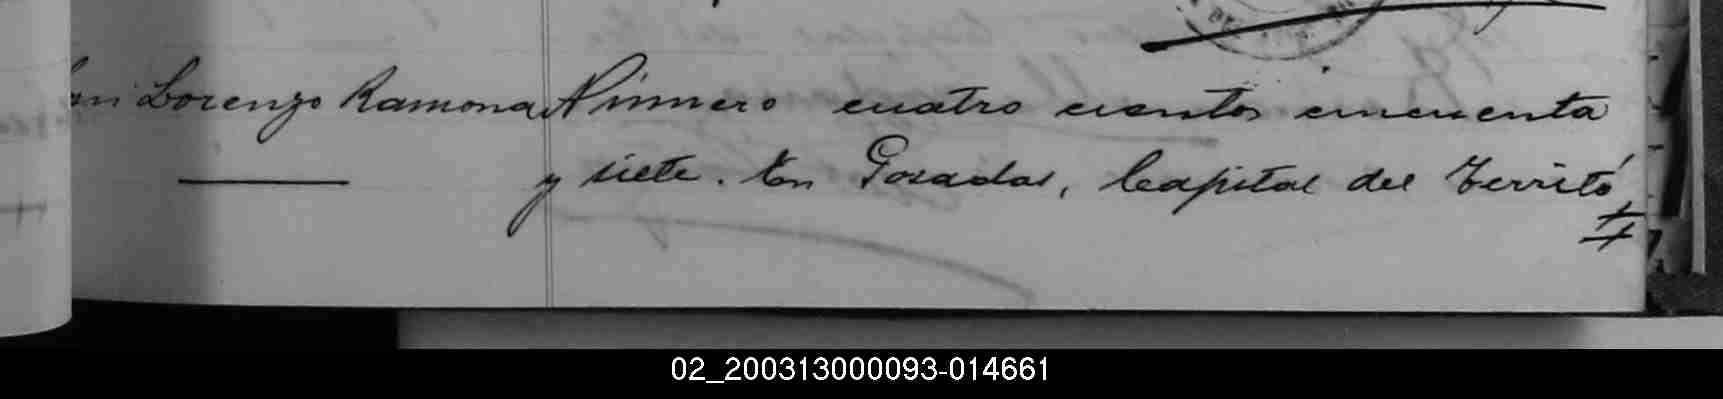 Lorenzo Ramona
Número cuatro cientos cincuenta
y siete. En Posadas, Capital del Territó
02_200313000093-014661